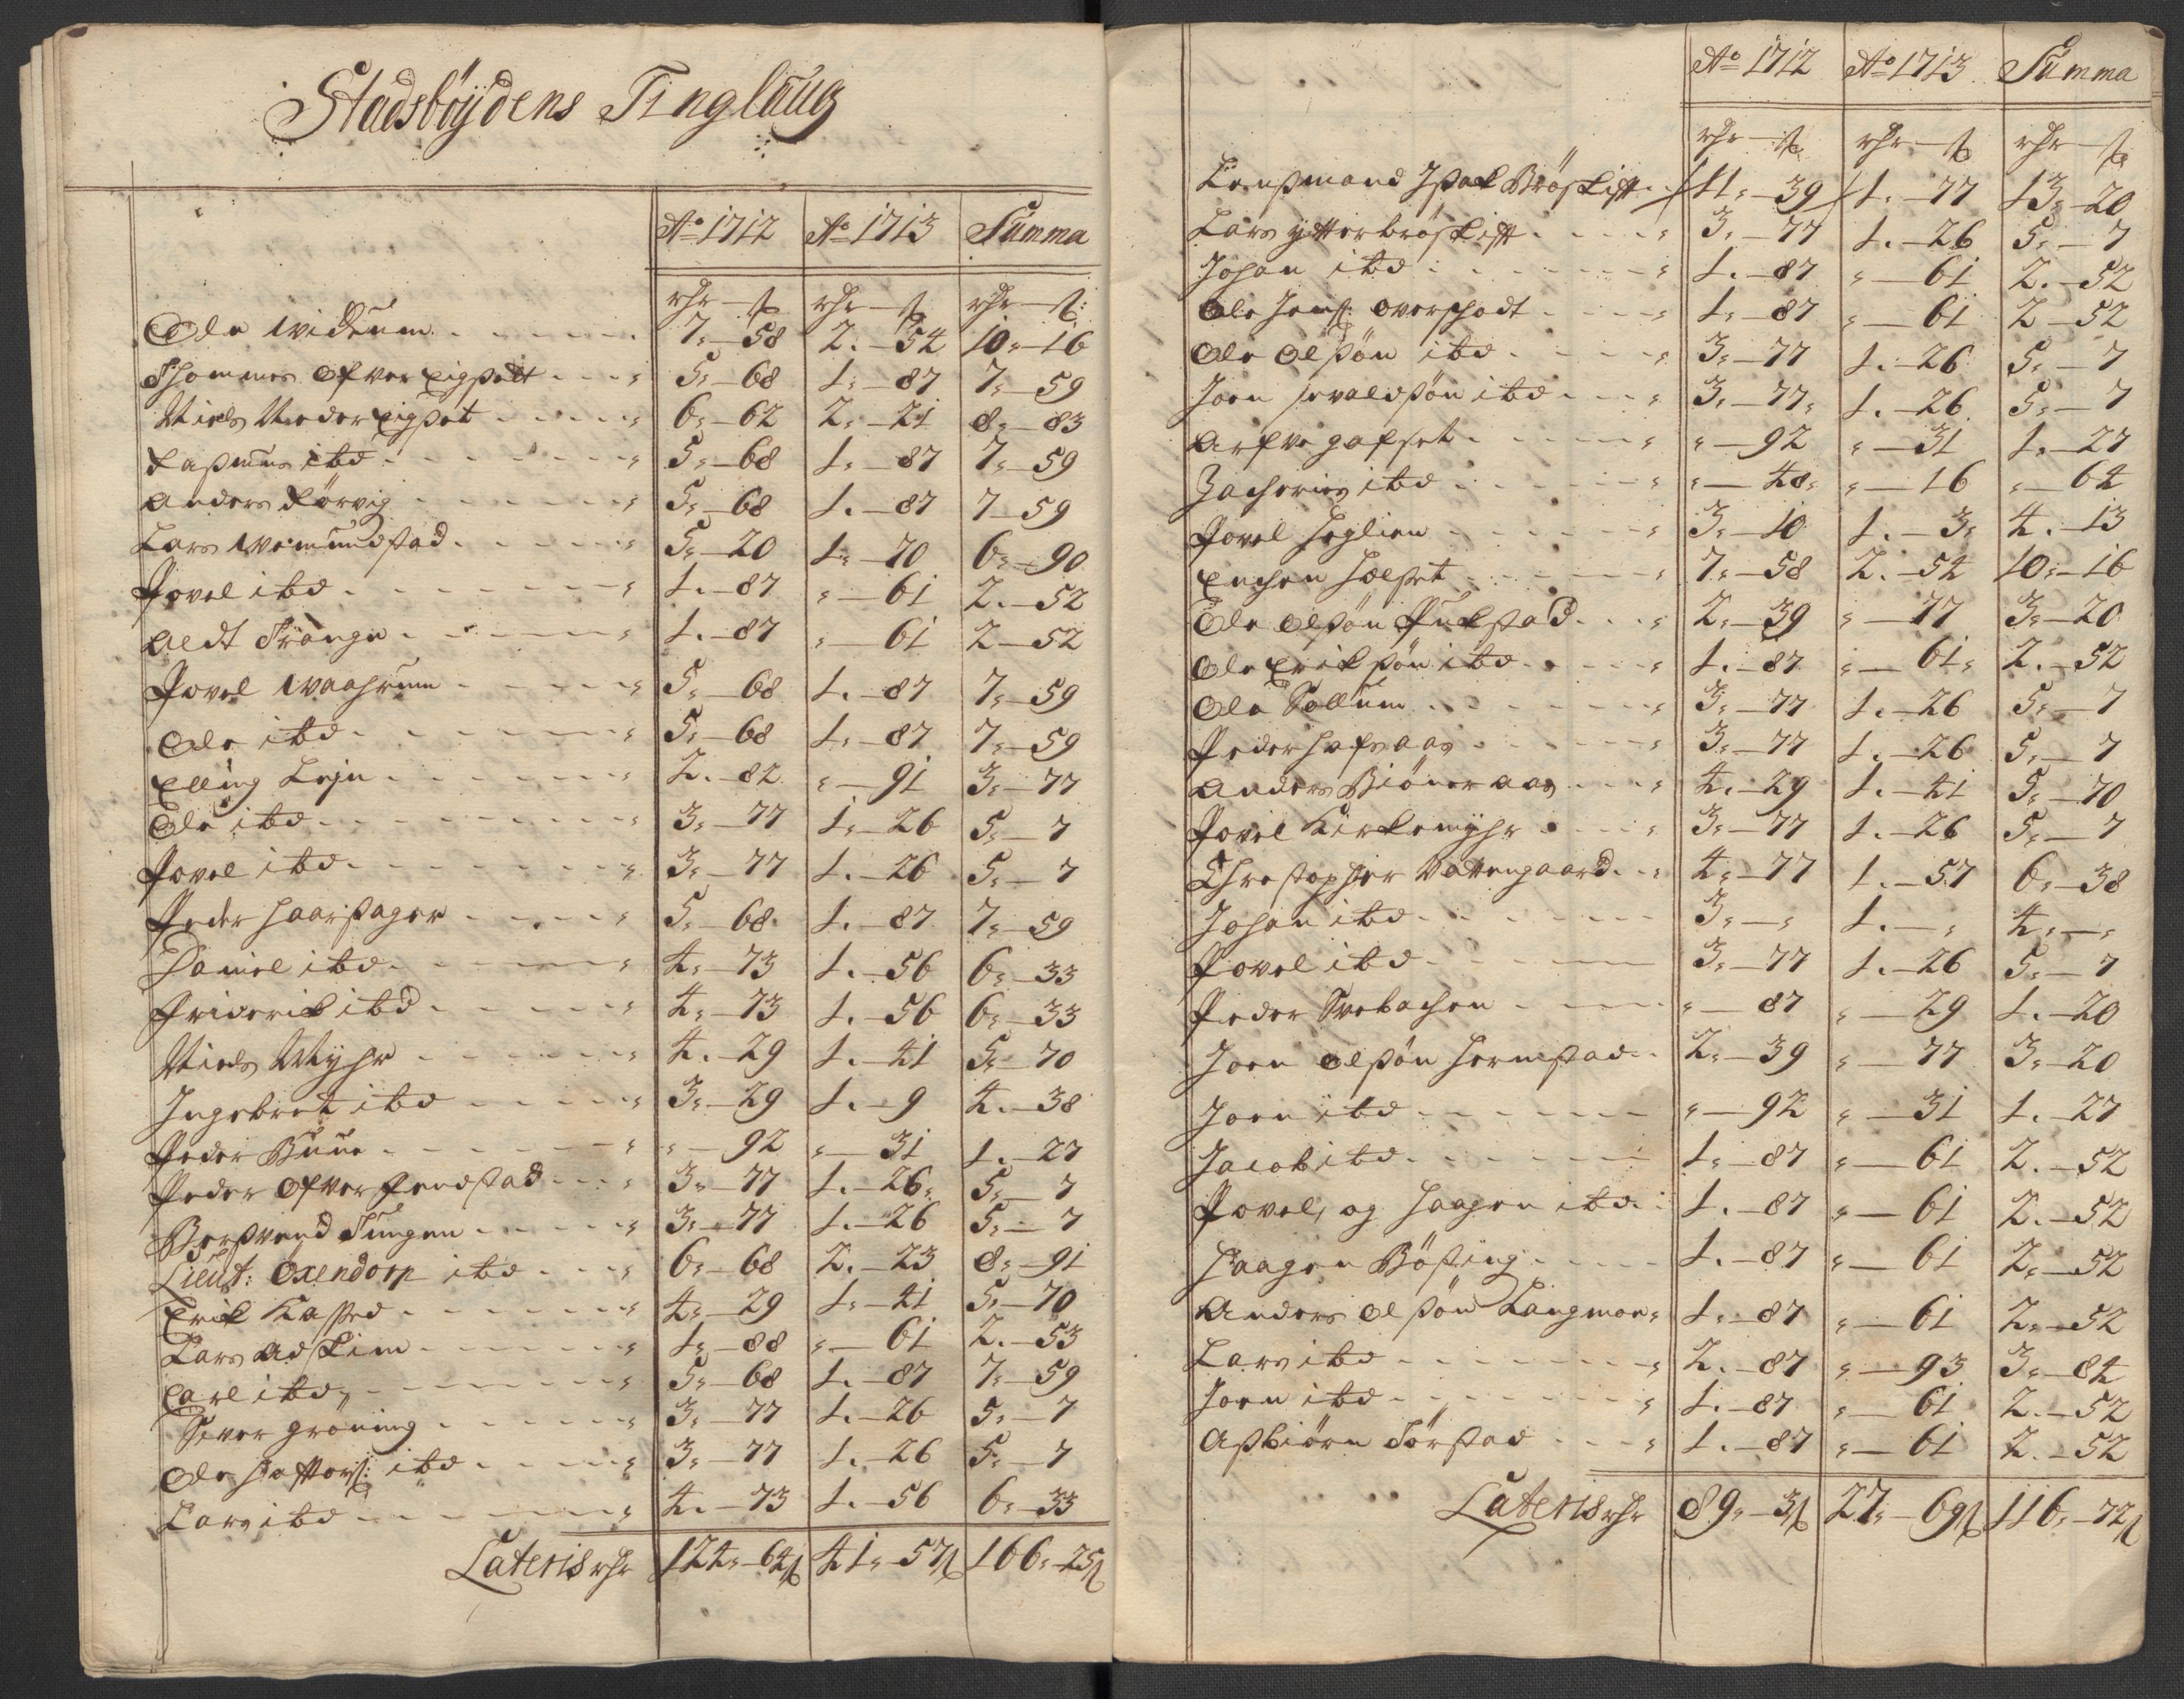 Stadsböÿdens Tinglaug
Ao 1712 Ao 1713 Summa
rdr ß rdr ß rdr ß
Ole Wideum 7 58 2 54 10 16
Thommes Ofver Eigsedt 5 68 1 87 7 59
Niels Neder Eigset 6 62 2 21 8 83
Rasmus ibd 5 68 1 87 7 59
Anders Rörvig 5 68 1 87 7 59
Lars Wemundstad 5 20 1 70 6 90
Povel ibd 1 87 " 61 2 52
Oedt Trange 1 87 " 61 2 52
Povel Waahrum 5 68 1 87 7 59
Ole ibd 5 68 1 87 7 59
Elling Lejn 2 82 " 91 3 77
Ole ibd 3 77 1 26 5 7
Povel ibd 3 77 1 26 5 7
Peder Haarsager 5 68 1 87 7 59
Daniel ibd 4 73 1 56 6 33
Friderik ibd 4 73 1 56 6 33
Niels Myhr 4 29 1 41 5 70
Ingebret ibd 3 29 1 9 4 38
Peder Buue " 92 " 31 1 27
Peder Ofver Fendstad 3 77 1 26 5 7
Bersvend Tungen 3 77 1 26 5 7
Lieut: Oxendorp ibd 6 68 2 23 8 91
Erik Kassed 4 29 1 41 5 70
Lars Adskim 1 88 " 61 2 53
Carl ibd 5 68 1 87 7 59
Siver Grönning 3 77 1 26 5 7
Ole Hattors: ibd 3 77 1 26 5 7
Lars ibd 4 73 1 56 6 33
Lateris rdr 124 64ß 41 57ß 166 25ß
Ao 1712 Ao 1713 Summa
rdr ß rdr ß rdr ß
Lensmand Isak Bröskift 11 39 1 77 13 20
Lars ytterbröskift 3 77 1 26 5 7
Johan ibd 1 87 " 61 2 52
Ole Jens: Overskodt 1 87 " 61 2 52
Ole Olsön ibd 3 77 1 26 5 7
Joen Sevaldsön ibd 3 77 1 26 5 7
Arfve Galset " 92 " 31 1 27
Zacharies ibd " 48 " 16 " 64
Povel Heglien 3 10 1 3 4 13
Enchen Holset 7 58 2 54 10 16
Ole Olsön Pukstad 2 39 " 77 3 20
Ole Eriksön ibd 1 87 " 61 2 52
Ole Sollum 3 77 1 26 5 7
Peder Hofsaas 3 77 1 26 5 7
Anders Biöneraas 4 29 1 41 5 70
Povel Kirkemyhr 3 77 1 26 5 7
Chrestopher Vattengaard 4 77 1 57 6 38
Johan ibd 3 " 1 " 4 "
Povel ibd 3 77 1 26 5 7
Peder Svebachen " 87 " 29 1 20
Joen Olsön Hermstad 2 39 " 77 3 20
Joen ibd " 92 " 31 1 27
Jacob ibd 1 87 " 61 2 52
Povel, og Haagen ibd 1 87 " 61 2 52
Haagen Bösting 1 87 " 61 2 52
Anders Olsön Langmoe 1 87 " 61 2 52
Lars ibd 2 87 " 93 3 84
Joen ibd 1 87 " 61 2 52
Asbiörn Törstad 1 87 " 61 2 52
Lateris rdr 89 3ß 27 69ß 116 72ß